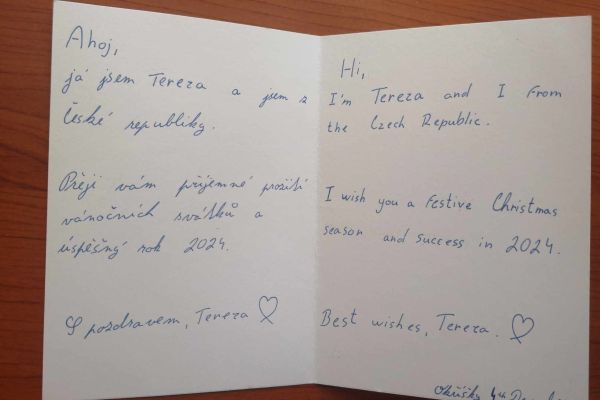 Ahoj,
já jsem Tereza a jsem z
České republiky.
Přeji vám příjemné prožití
vánočních svátků a
úspěšný rok 2024.
S pozdravem, Tereza ♡
Hi,
I'm Tereza and I from
the Czech Republic.
I wish you a festive Christmas
season and success in 2024.
Best wishes, Tereza. ♡
Okříšky 4th